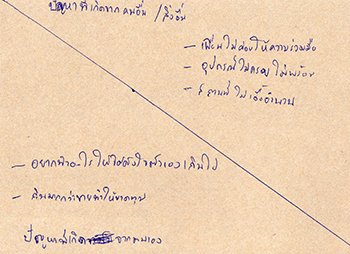 ปัญหาที่เกิดจากคนอื่น / สิ่งอื่น
- เพื่อนไม่ค่อยให้ความร่วมมือ
- อุปกรณ์ไม่ครบ ไม่พร้อม
- สถานที่ไม่เอื้ออำนวย
- อยากทำอะไรให้ได้ดั่งใจตัวเองเกินไป
- กินมากกว่าขายทำให้ขาดทุน
ปัญหาที่เกิด จากตนเอง